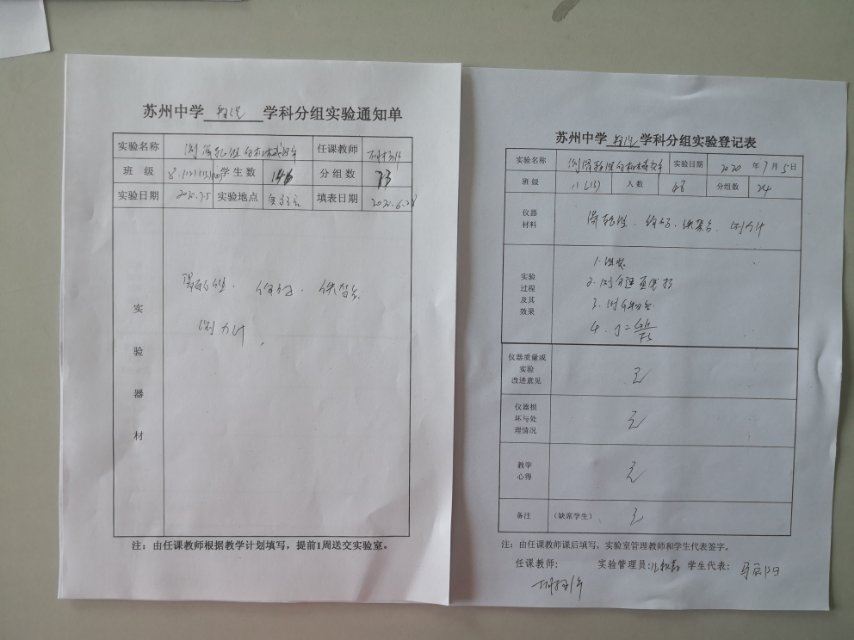 苏州中学 物理 学科分组实验通知单
实验名称 测滑轮组的机械效率 任课教师
班 级 学生数 146 分组数 73
实验日期 2020.7.5 实验地点 实验室 填表日期 2020.6.28
实验器材
滑轮组、钩码、铁架台
测力计
注：由任课教师根据教学计划填写，提前1周送交实验室。
苏州中学 物理 学科分组实验登记表
实验名称 测滑轮组的机械效率 实验日期 2020 年 7 月 5 日
班级 人数 48 分组数 24
仪器材料 滑轮组、钩码、铁架台、测力计
实验过程及其效果
1.组装
2.测
3.测
4.η=Gh/Fs
仪器质量或实验改进意见 无
仪器损坏与处理情况 无
教学心得 无
备注 (缺席学生) 无
注：由任课教师课后填写，实验室管理教师和学生代表签字。
任课教师: 实验管理员: 学生代表: